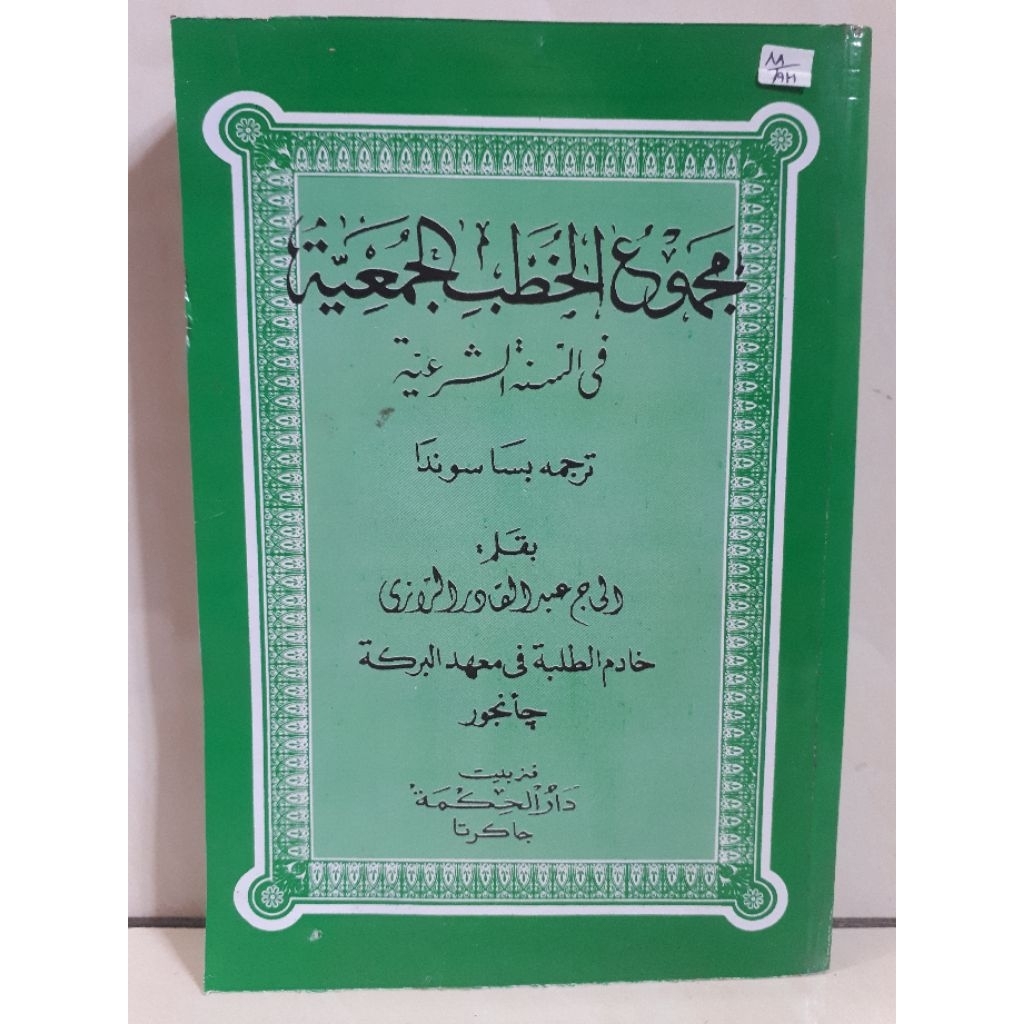 مَجْمُوْعُ الْخُطَبِ الْجُمُعِيَّةِ
في السنة الشرعية
ترجمه بسا سوندا
بقلم:
الحاج عبد القادر الرازى
خادم الطلبة في معهد البركة
چأنجور
ڤنربيت
دَارُ الْحِكْمَة
جاكرتا